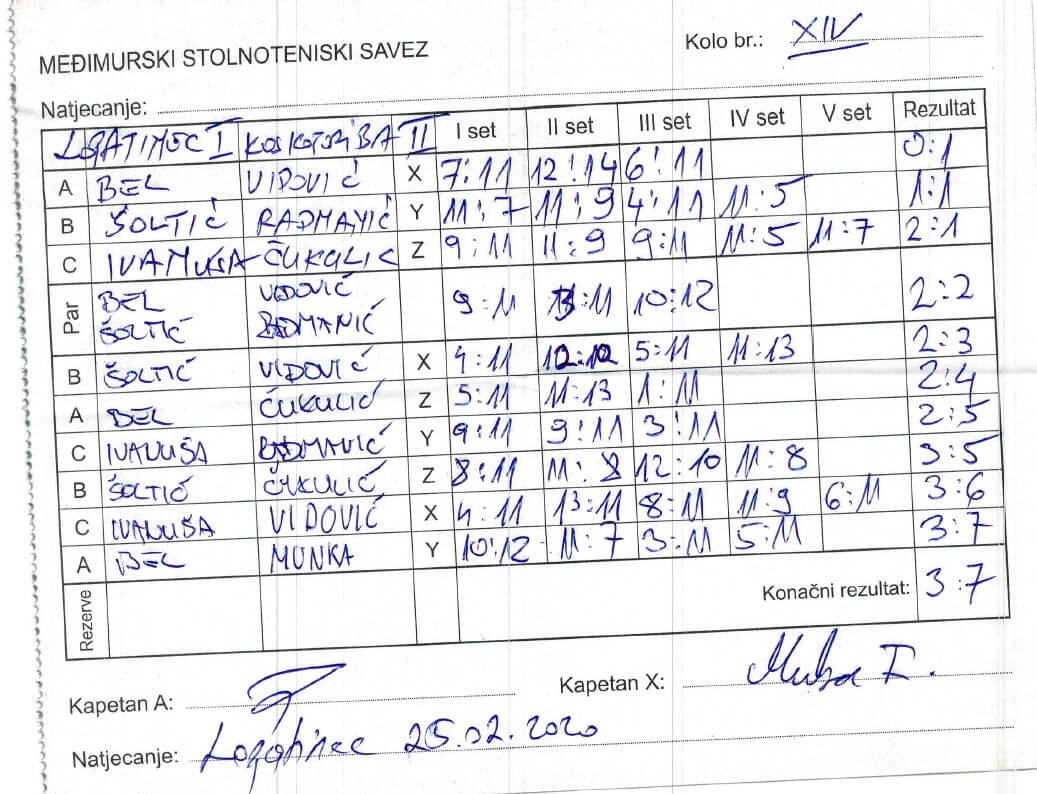 MEĐIMURSKI STOLNOTENISKI SAVEZ
Kolo br.: XIV
Natjecanje:
LOPATINEC I KOTORIBA II I set II set III set IV set V set Rezultat
A BEL VIDOVIĆ X 7:11 12:14 6:11 0:1
B ŠOLTIĆ RADMANIĆ Y 11:7 11:9 4:11 11:5 1:1
C IVANUŠA ČUKULIĆ Z 9:11 11:9 9:11 11:5 11:7 2:1
Par BEL VIDOVIĆ 9:11 :11 10:12 2:2
ŠOLTIĆ RADMANIĆ
B ŠOLTIĆ VIDOVIĆ X 4:11 5:11 11:13 2:3
A BEL ČUKULIĆ Z 5:11 11:13 1:11 2:4
C IVANUŠA RADMANIĆ Y 9:11 9:11 3:11 2:5
B ŠOLTIĆ ČUKULIĆ Z 8:11 11:8 12:10 11:8 3:5
C IVANUŠA VIDOVIĆ X 4:11 13:11 8:11 11:9 6:11 3:6
A BEL MUNKA Y 10:12 11:7 3:11 5:11 3:7
Rezerve Konačni rezultat: 3:7
Kapetan A:
Kapetan X:
Natjecanje: Lopatinec 25.02.2020